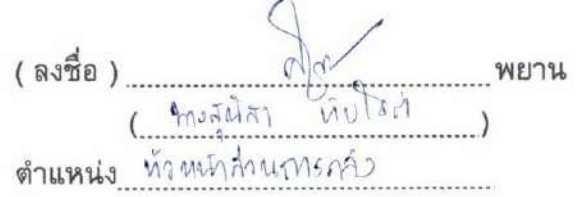 ( ลงชื่อ ) พยาน
( นางสุนิสา )
ตำแหน่ง หัวหน้าส่วนการคลัง